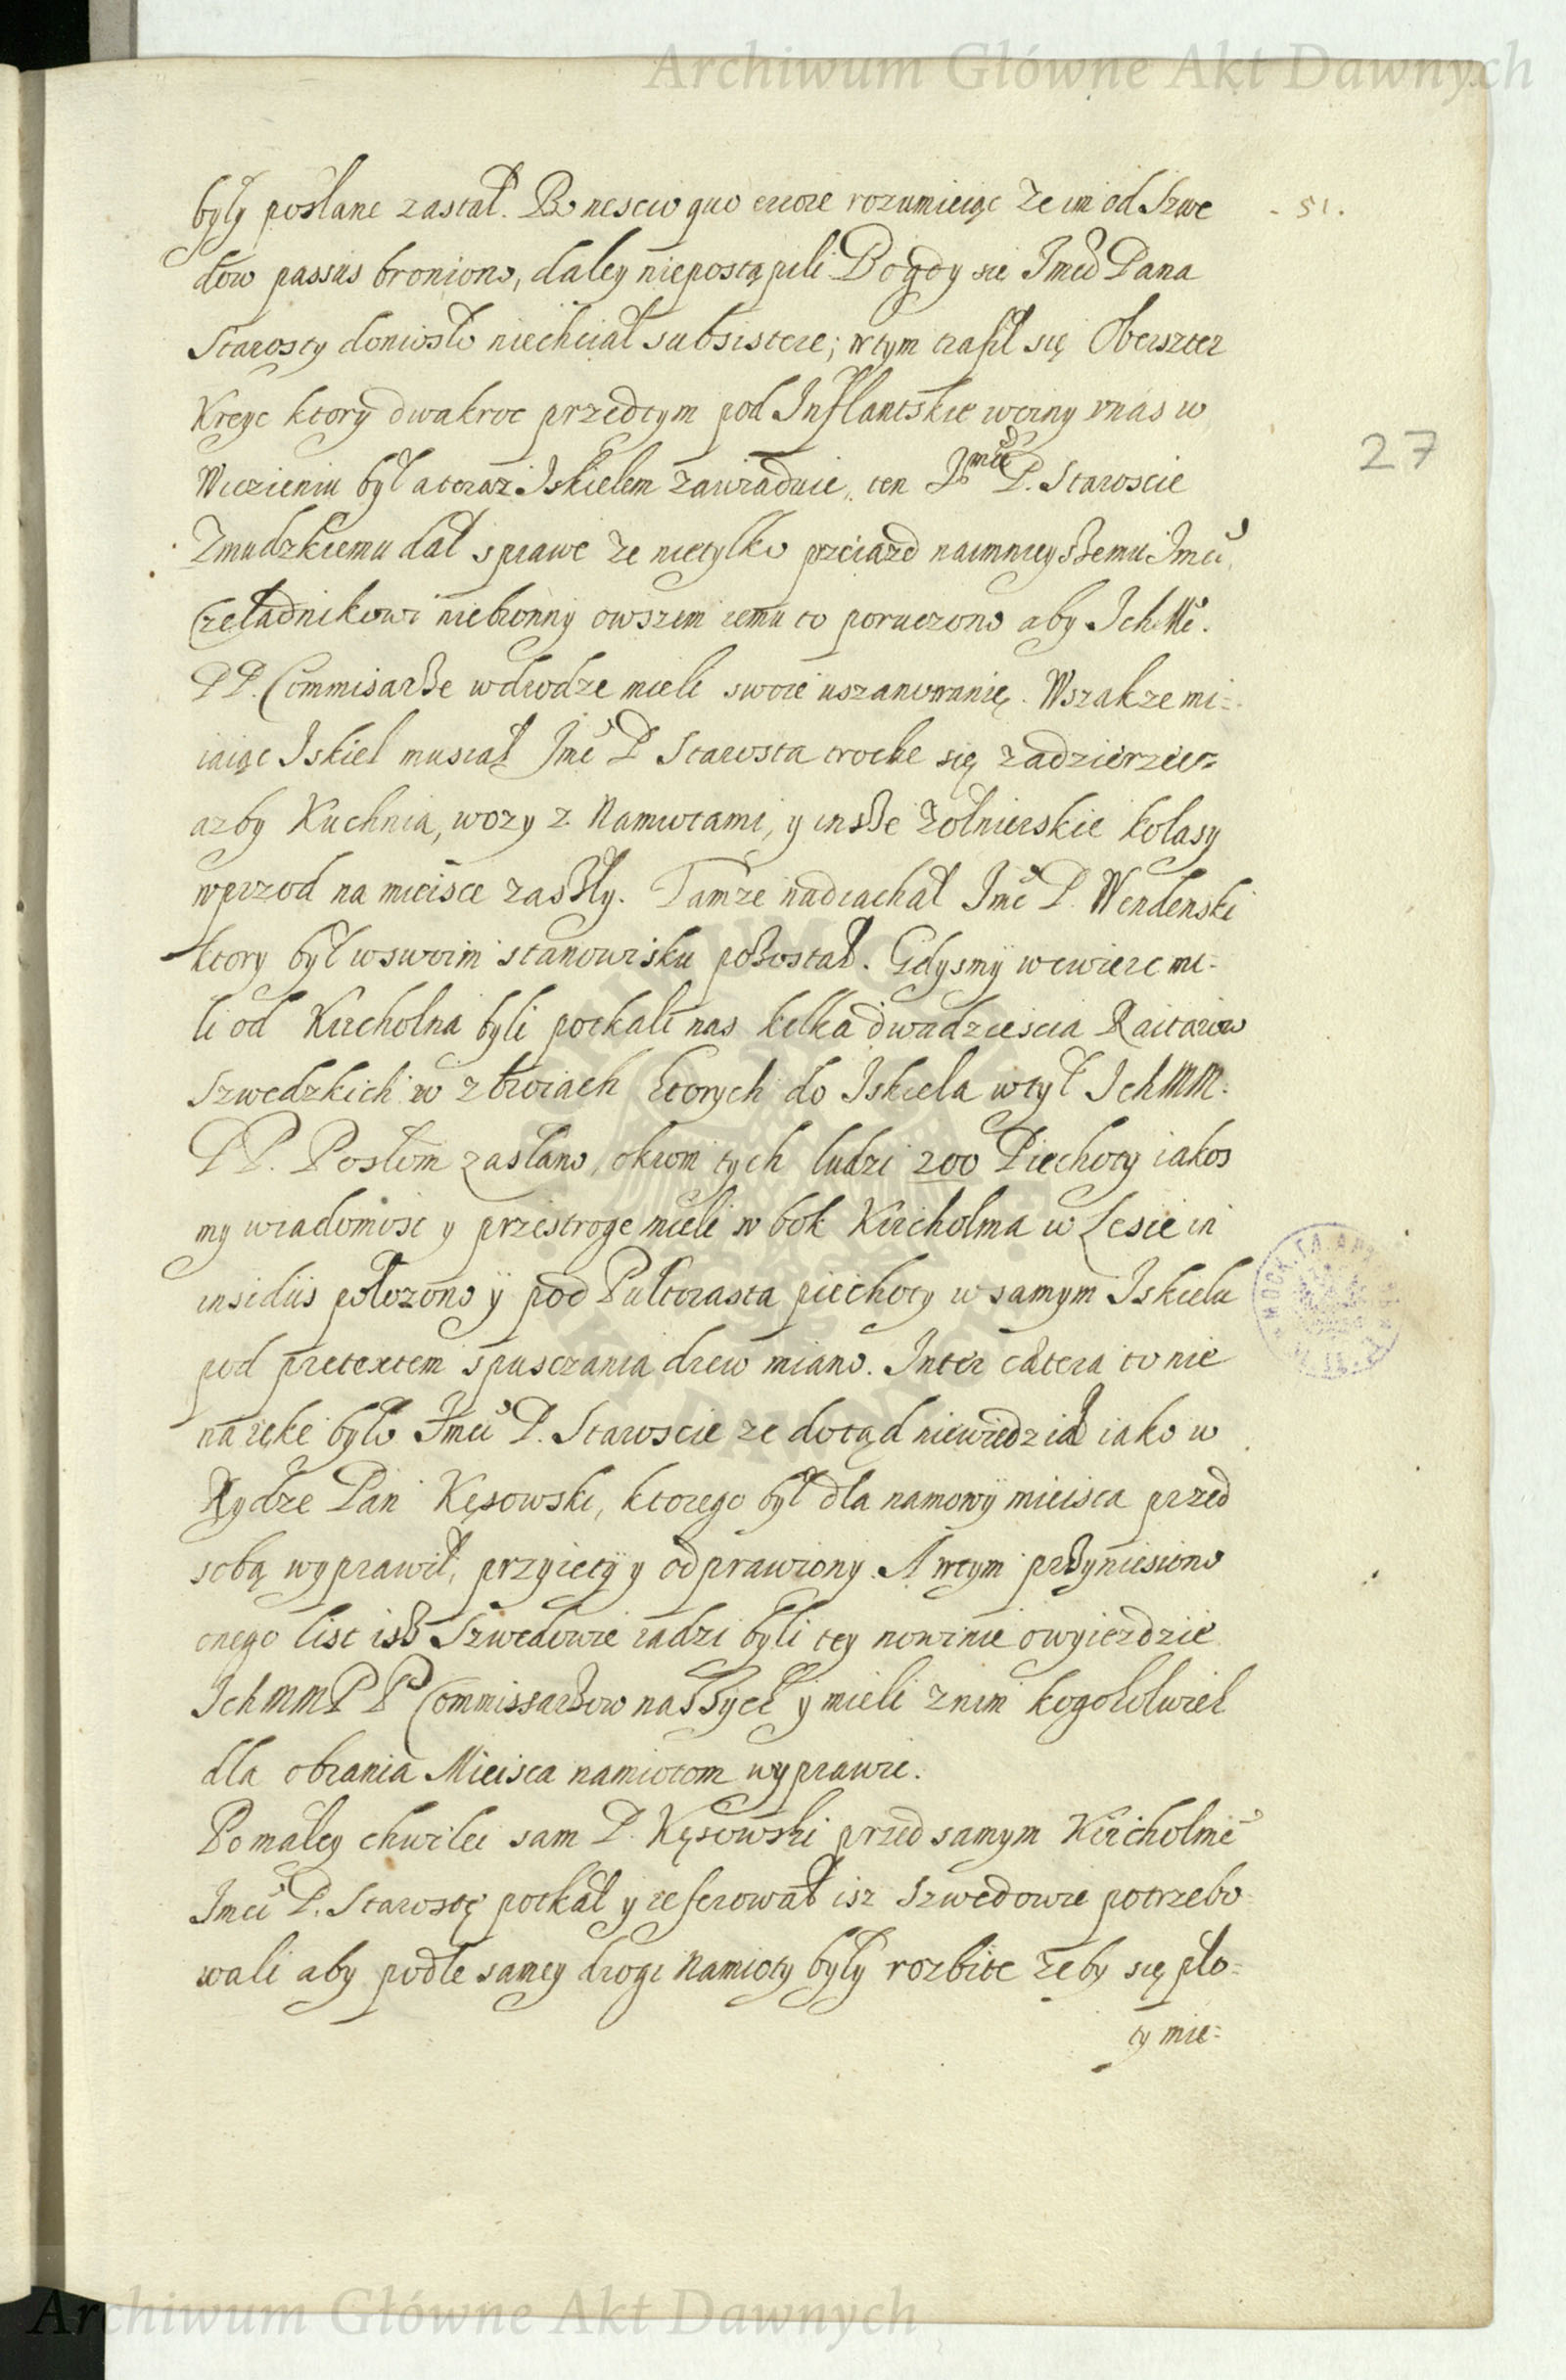 Archiwum Główne Akt Dawnych
były posłane zastał. Bo nescio quo errore rozumieiąc że im od Szwe
- 51.
dow passus broniono, daley niepostąpili Bo gdy sie Jmci Pana
Starosty doniosło niechciał subsistere; wtym trafił się Oberszter
Kreyc ktory dwakroc przedtym pod Inflantskie woiny v nas w
27
Wiezieniu był a teraz Iskielem zawiaduie, ten Jmci P. Staroscie
Zmudzkiemu dał sprawe że nietylko przeiazd naimnieyszemu Jmci
Czeladnikowi niebronny owszem iemu to poruczono aby Ich Mć.
PP. Commisarze wdrodze mieli swoie uszanowanię. Wszakze mi=
iaiąc Iskiel musiał Jmć P Starosta troche się zadzierzec
azby Kuchnia, wozy z Namiotami, y insze żołnierskie kolasy
wprzod na mieisce zaszły. Tamże nadiachał Jmć P. Wendenski
ktory był wswoim stanowisku pozostał. Gdysmy wewierc mi=
li od Kircholna byli potkali nas kilkadwadziescia Raitarow
Szwedzkich w zbroiach ktorych do Iskiela wtył Ich MM.
PP. Posłom zasłano, okrom tych ludzi 200 Piechoty iakos
my wiadomosc y przestroge mieli w bok Kircholma w Lesie in
insidiis położono y pod Pułtorasta piechoty w samym Iskielu
pod pretextem spusczania drew miano. Inter cætera to nie
na rękę było Jmci P. Staroscie ze dotąd niewiedział iako w
Rydze Pan Kęsowski, ktorego był dla namowy mieisca przed
sobą wyprawił, przyięty y odprawiony. A wtym przyniesiono
onego list isz Szwedowie radzi byli tey nowinie o wyiezdzie
Ich MM PP Commissarzow naszych y mieli znim kogokolwiek
dla obrania Mieisca namiotom wyprawic.
Po małey chwilei sam P. Kęsowski przed samym Kircholmē
Jmci P. Starostę potkał y referował isz Szwedowie potrzebo
wali aby podle samey drogi Namioty były rozbite żeby się pło=
ty mie=
Archiwum Główne Akt Dawnych